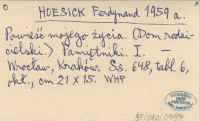 HOESICK Ferdynand 1959 a.
Powieść mojego życia. (Dom rodzi-
cielski.) Pamiętniki. I. —
Wrocław, Kraków. Ss. 648, tabl. 6,
okł., cm 21 x 15. WHP